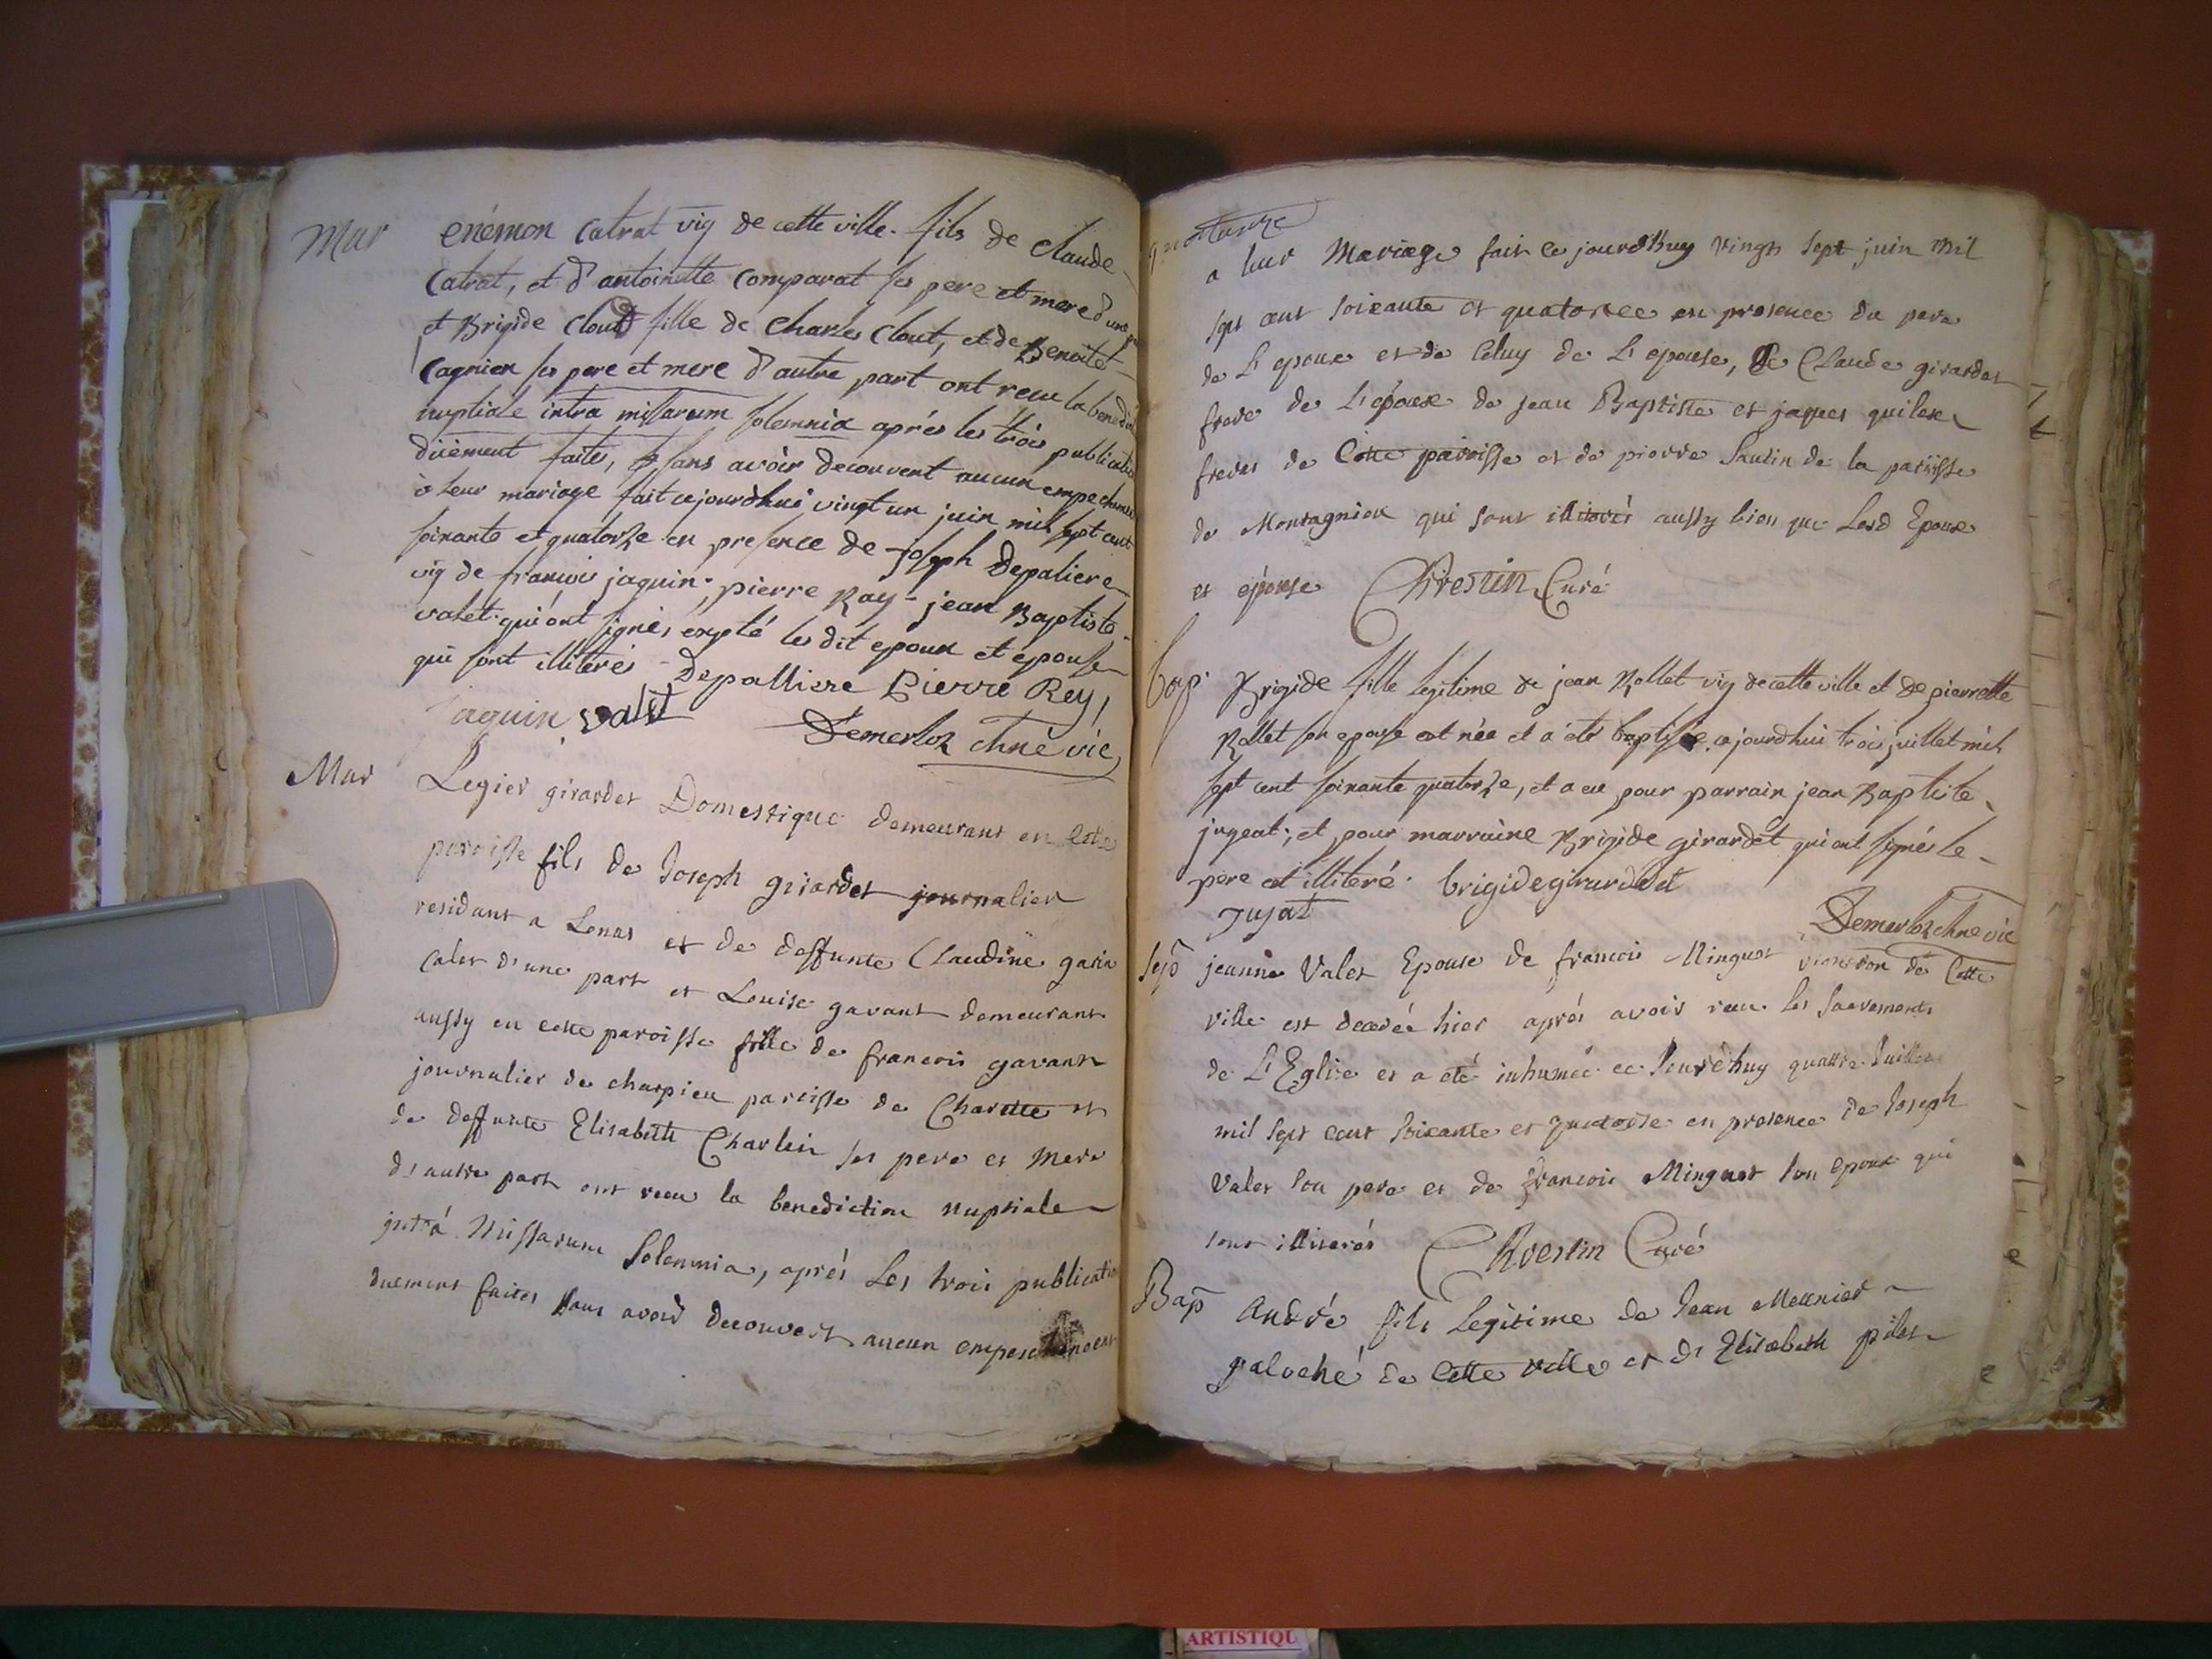 Mar
enémon Catrat vig de cette ville. fils de Claude
Catrat, et d'antoinette Comparat ses pere et mere d'une
et Brigide Clout fille de Charles Clout, et de Benoite
Cagnien ses pere et mere d'autre part ont recu la benedict
nuptiale intra missarum solemnia aprés les trois publicatio
düement faites, sans avoir decouvert aucun empecheme
à leur mariage fait cejourdhui vingt un juin mil sept cent
soixante et quatorze en presence de joseph Depaliere
vig de francois jaquin, pierre Ray - jean Baptiste
valet qui ont signés expté les dit epoux et epouse
qui sont illiterés Depalliere Pierre Rey,
jaquin valet
Demerloz chne vic,
Mar
Legier girardet Domestique demeurant en cette
paroisse fils de Joseph girardet journalier
residant a Lenas et de deffunte Claudine
d'une part et Louise gavant demeurant
aussy en cette paroisse fille de francois gavant
journalier de charpieu paroisse de Charette et
de deffunte Elisabeth Charlein ses pere et mere
d'autre part ont recu la benediction nuptiale
intrá Missarum Solemnia, aprés Les trois publicatio
duement faites sans avoir decouvert aucun empeschement
quatorze
a leur Mariage fait ce jourdhuy vingt sept juin mil
sept cent soixante et quatorze en presence du pere
de L'epoux et de Celuy de L'epouse, de Claude girardet
frere de L'époux de jean Baptiste et jaques
freres de Cette paroisse et de pierre Saurin de la paroisse
de Montagnieu qui sont illiterés aussy bien que Lesd Epoux
et épouse Chrestin Curé
bap.
Brigide fille legitime de jean Rollet vig de cette ville et de pierrette
Rollet son epouse est née et a été baptisée cejourdhui trois juillet mil
sept cent soixante quatorze, et a eu pour parrain jean Baptiste
jugeat; et pour marraine Brigide girardet qui ont signés le
pere est illiteré. brigide girardet
Jujat
Demerloz chne vic
Sep
jeanne Valet Epouse de francois Minguet vigneron de Cette
ville est decedée hier aprés avoir recu les Sacrements
de L'Eglise et a été inhumée ce Jourdhuy quattre Juillet
mil sept cent soixante et quatorze en presence de Joseph
Valet son pere et de francois Minguet son epoux qui
sont illiterés Chrestin Curé
Bap
André fils Legitime de Jean Meunier
galoché de Cette ville et d'Elisabeth pilet
ARTISTIQU